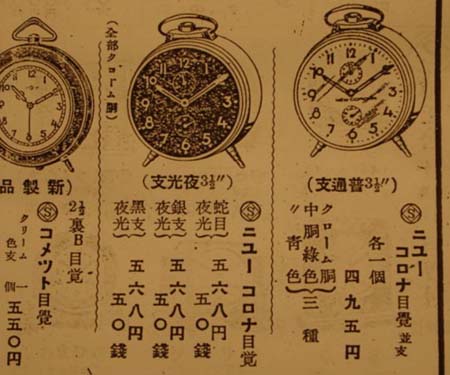 (3½″普通支)
Ⓢ ニユーコロナ目覺 並支
各一個 四九五円
クローム胴
中胴綠色
〃 青色
三種
(3½″夜光支)
Ⓢ ニユーコロナ目覚
蛇目夜光 五六八円五〇錢
銀支夜光 五六八円五〇錢
黑支夜光 五六八円五〇錢
(全部クローム胴)
(新製品
Ⓢ コメツト目覺
2½裏B目覚
クリーム色支 一個 五五〇円